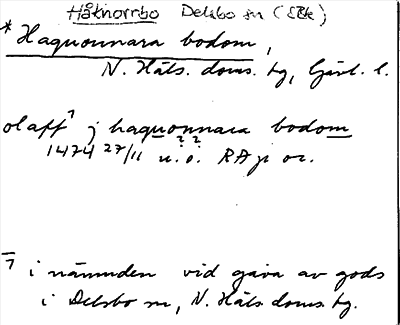 Håknorrbo Delsbo sn (SBk)
* Haquonnara bodom,
N. Häls. doms. tg, Gävl. l.
olaff ⁊ j haquonnara bodom
? ?
1474 27/11 u.ö. RAp or.
⁊ i nämnden vid gåva av gods
i Delsbo sn, N. Häls doms. tg.